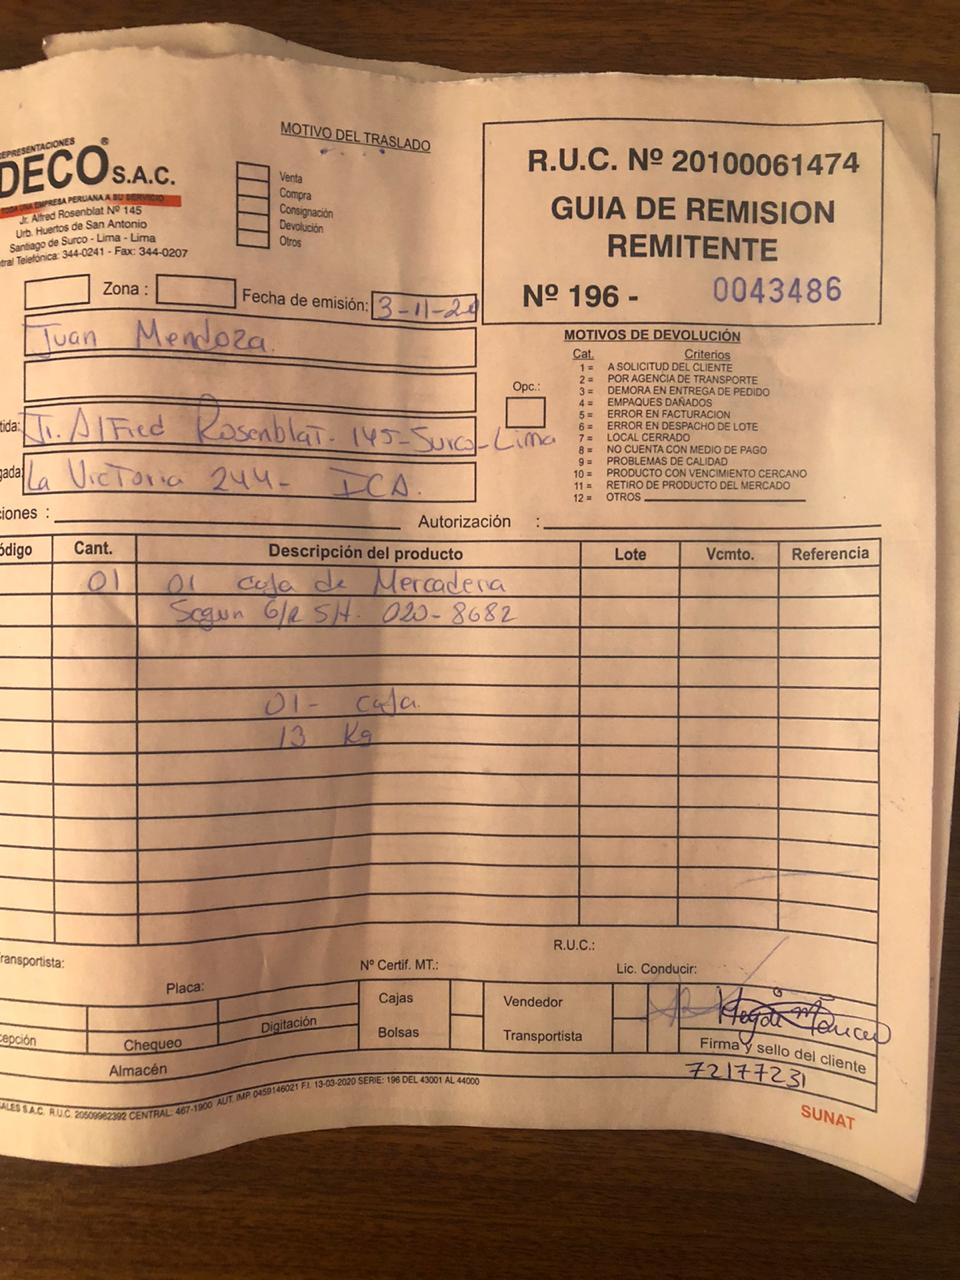 REPRESENTACIONES
DECO® S.A.C.
TODA UNA EMPRESA PERUANA A SU SERVICIO
Jr. Alfred Rosenblat Nº 145
Urb. Huertos de San Antonio
Santiago de Surco - Lima - Lima
tral Telefónica: 344-0241 - Fax: 344-0207
MOTIVO DEL TRASLADO
Venta
Compra
Consignación
Devolución
Otros
R.U.C. Nº 20100061474
GUIA DE REMISION
REMITENTE
Nº 196 - 0043486
Zona :
Fecha de emisión: 3-11-20
Juan Mendoza.
tida: Jr. Alfred Rosenblat. 145-Surco-Lima
gada: La Victoria 244- ICA.
MOTIVOS DE DEVOLUCIÓN
Cat. Criterios
1 = A SOLICITUD DEL CLIENTE
2 = POR AGENCIA DE TRANSPORTE
3 = DEMORA EN ENTREGA DE PEDIDO
4 = EMPAQUES DAÑADOS
5 = ERROR EN FACTURACION
6 = ERROR EN DESPACHO DE LOTE
7 = LOCAL CERRADO
8 = NO CUENTA CON MEDIO DE PAGO
9 = PROBLEMAS DE CALIDAD
10 = PRODUCTO CON VENCIMIENTO CERCANO
11 = RETIRO DE PRODUCTO DEL MERCADO
12 = OTROS
Opc.:
ciones :
Autorización :
ódigo Cant. Descripción del producto Lote Vcmto. Referencia
01 01 caja de Mercaderia
Segun G/R S/H. 020-8682
01- caja.
13 Kg
ransportista:
R.U.C.:
Placa:
Nº Certif. MT.:
Lic. Conducir:
Cajas
Bolsas
Vendedor
Transportista
cepción
Chequeo
Digitación
Almacén
Firma y sello del cliente
72177231
ALES S.A.C. R.U.C. 20509962392 CENTRAL: 467-1900 AUT. IMP. 0459146021 F.I. 13-03-2020 SERIE: 196 DEL 43001 AL 44000
SUNAT